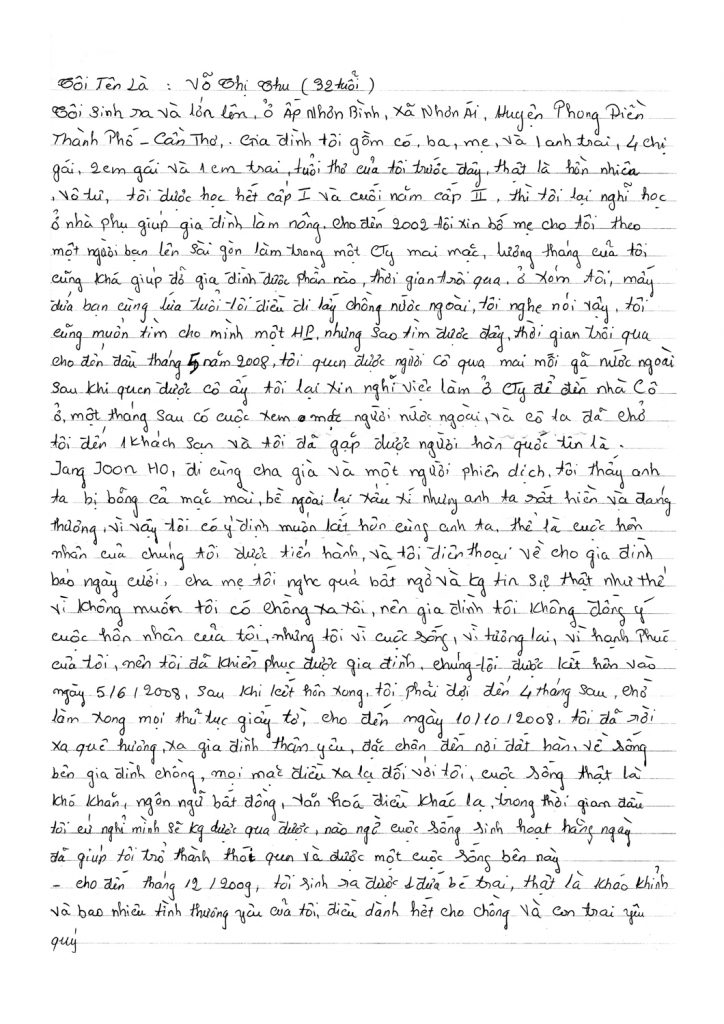 Tôi Tên Là : Võ Thị Thu ( 32 tuổi )
Tôi sinh ra và lớn lên, ở Ấp Nhơn Bình, xã Nhơn Ái, Huyện Phong Điền
Thành Phố - Cần Thơ,. Gia đình tôi gồm có, ba, mẹ, và 1 anh trai, 4 chị
gái, 2 em gái và 1 em trai, tuổi thơ của tôi trước đây, thật là hồn nhiên
, vô tư, tôi được học hết cấp I và cuối năm cấp II, thì tôi lại nghĩ học
ở nhà phụ giúp gia đình làm nông. cho đến 2002 tôi xin bố mẹ cho tôi theo
một người bạn lên Sài gòn làm trong một Cty mai mặc, lương tháng của tôi
cũng khá giúp đỡ gia đình được phần nào, thời gian trôi qua. ở xóm tôi, mấy
đứa bạn cùng lứa tuổi tôi điều đi lấy chồng nước ngoài, tôi nghe nói vậy, tôi
cũng muốn tìm cho mình một HP, nhưng sao tìm được đây, thời gian trôi qua
cho đến đầu tháng 5 năm 2008, tôi quen được người cô qua mai mối gã nước ngoài
sau khi quen được cô ấy tôi lại xin nghĩ việc làm ở Cty để đến nhà Cô
ở, một tháng sau có cuộc xem mắc người nước ngoài, và cô ta đã chở
tôi đến 1 khách sạn và tôi đã gặp được người hàn quốc tên là.
Jang Joon Ho, đi cùng cha già và một người phiên dịch. tôi thấy anh
ta bị bỏng cả mặc mài, bề ngoài lại xấu xí nhưng anh ta rất hiền và đáng
thương, vì vậy tôi có ý định muốn kết hôn cùng anh ta, thế là cuộc hôn
nhân của chúng tôi được tiến hành, và tôi điện thoại về cho gia đình
báo ngày cưới, cha mẹ tôi nghe quá bất ngờ và kg tin sự thật như thế
vì không muốn tôi có chồng xa tôi, nên gia đình tôi không đồng ý
cuộc hôn nhân của tôi, nhưng tôi vì cuộc sống, vì tương lai, vì hạnh phúc
của tôi, nên tôi đã khiến phục được gia đình, chúng tôi được kết hôn vào
ngày 5/6/2008, sau khi kết hôn xong, tôi phải đợi đến 4 tháng sau, chờ
làm xong mọi thủ tục giấy tờ, cho đến ngày 10/10/2008. tôi đã rời
xa quê hương, xa gia đình thân yêu, đặc chân đến nơi đất hàn, về sống
bên gia đình chồng, mọi mặc điều xa lạ đối với tôi, cuộc sống thật là
khó khăn, ngôn ngữ bất đồng, văn hoá điều khác lạ, trong thời giam đầu
tôi cứ nghĩ mình sẽ kg được qua được, nào ngờ cuộc sống sinh hoạt hằng ngày
đã giúp tôi trở thành thói quen và được một cuộc sống bên này
- cho đến tháng 12/2009, tôi sinh ra được 1 đứa bé trai, thật là kháo khỉnh
và bao nhiêu tình thương yêu của tôi, điều dành hết cho chồng và con trai yêu
quý